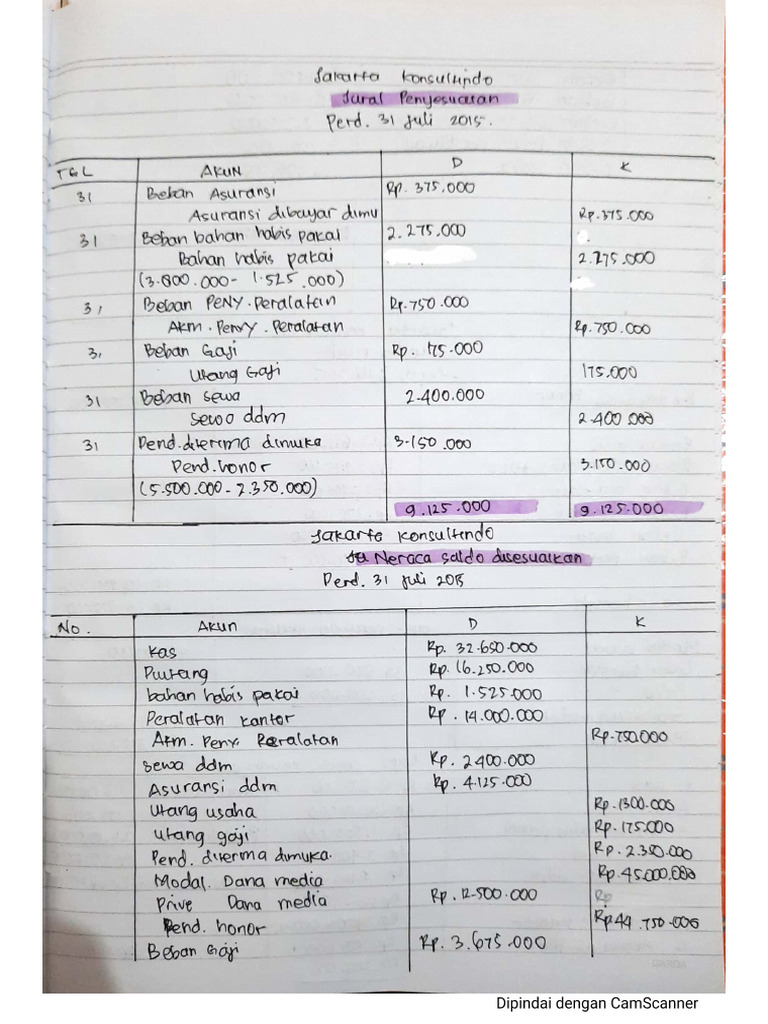 Jakarta Konsultindo
Jural Penyesuaian
Perd. 31 Juli 2015.
TGL AKUN D K
31 Beban Asuransi Rp. 375.000
Asuransi dibayar dimu Rp.375.000
31 Beban bahan habis pakai 2.275.000
Bahan habis pakai 2.275.000
(3.800.000- 1.525.000)
31 Beban Peny. Peralatan Rp.750.000
Akm. Peny. Peralatan Rp.750.000
31 Beban Gaji Rp. 175.000
Utang Gaji 175.000
31 Beban sewa 2.400.000
Sewa ddm 2.400.000
31 Pend.diterima dimuka 3.150.000
Pend.honor 3.150.000
(5.500.000-2.350.000)
9.125.000 9.125.000
Jakarta Konsultindo
Neraca saldo disesuaikan
Perd. 31 Juli 2015
No. Akun D K
Kas Rp. 32.650.000
Piutang Rp. 16.250.000
bahan habis pakai Rp. 1.525.000
Peralatan kantor Rp. 14.000.000
Akm. Peny. Peralatan Rp.750.000
Sewa ddm Rp. 2.400.000
Asuransi ddm Rp. 4.125.000
Utang usaha Rp.1300.000
Utang gaji Rp.175.000
Pend. diterma dimuka. Rp.2.350.000
Modal. Dana media Rp.45.000.000
Prive Dana media Rp. 12.500.000 Rp
Pend. honor Rp.44.750.000
Beban Gaji Rp. 3.675.000
Dipindai dengan CamScanner